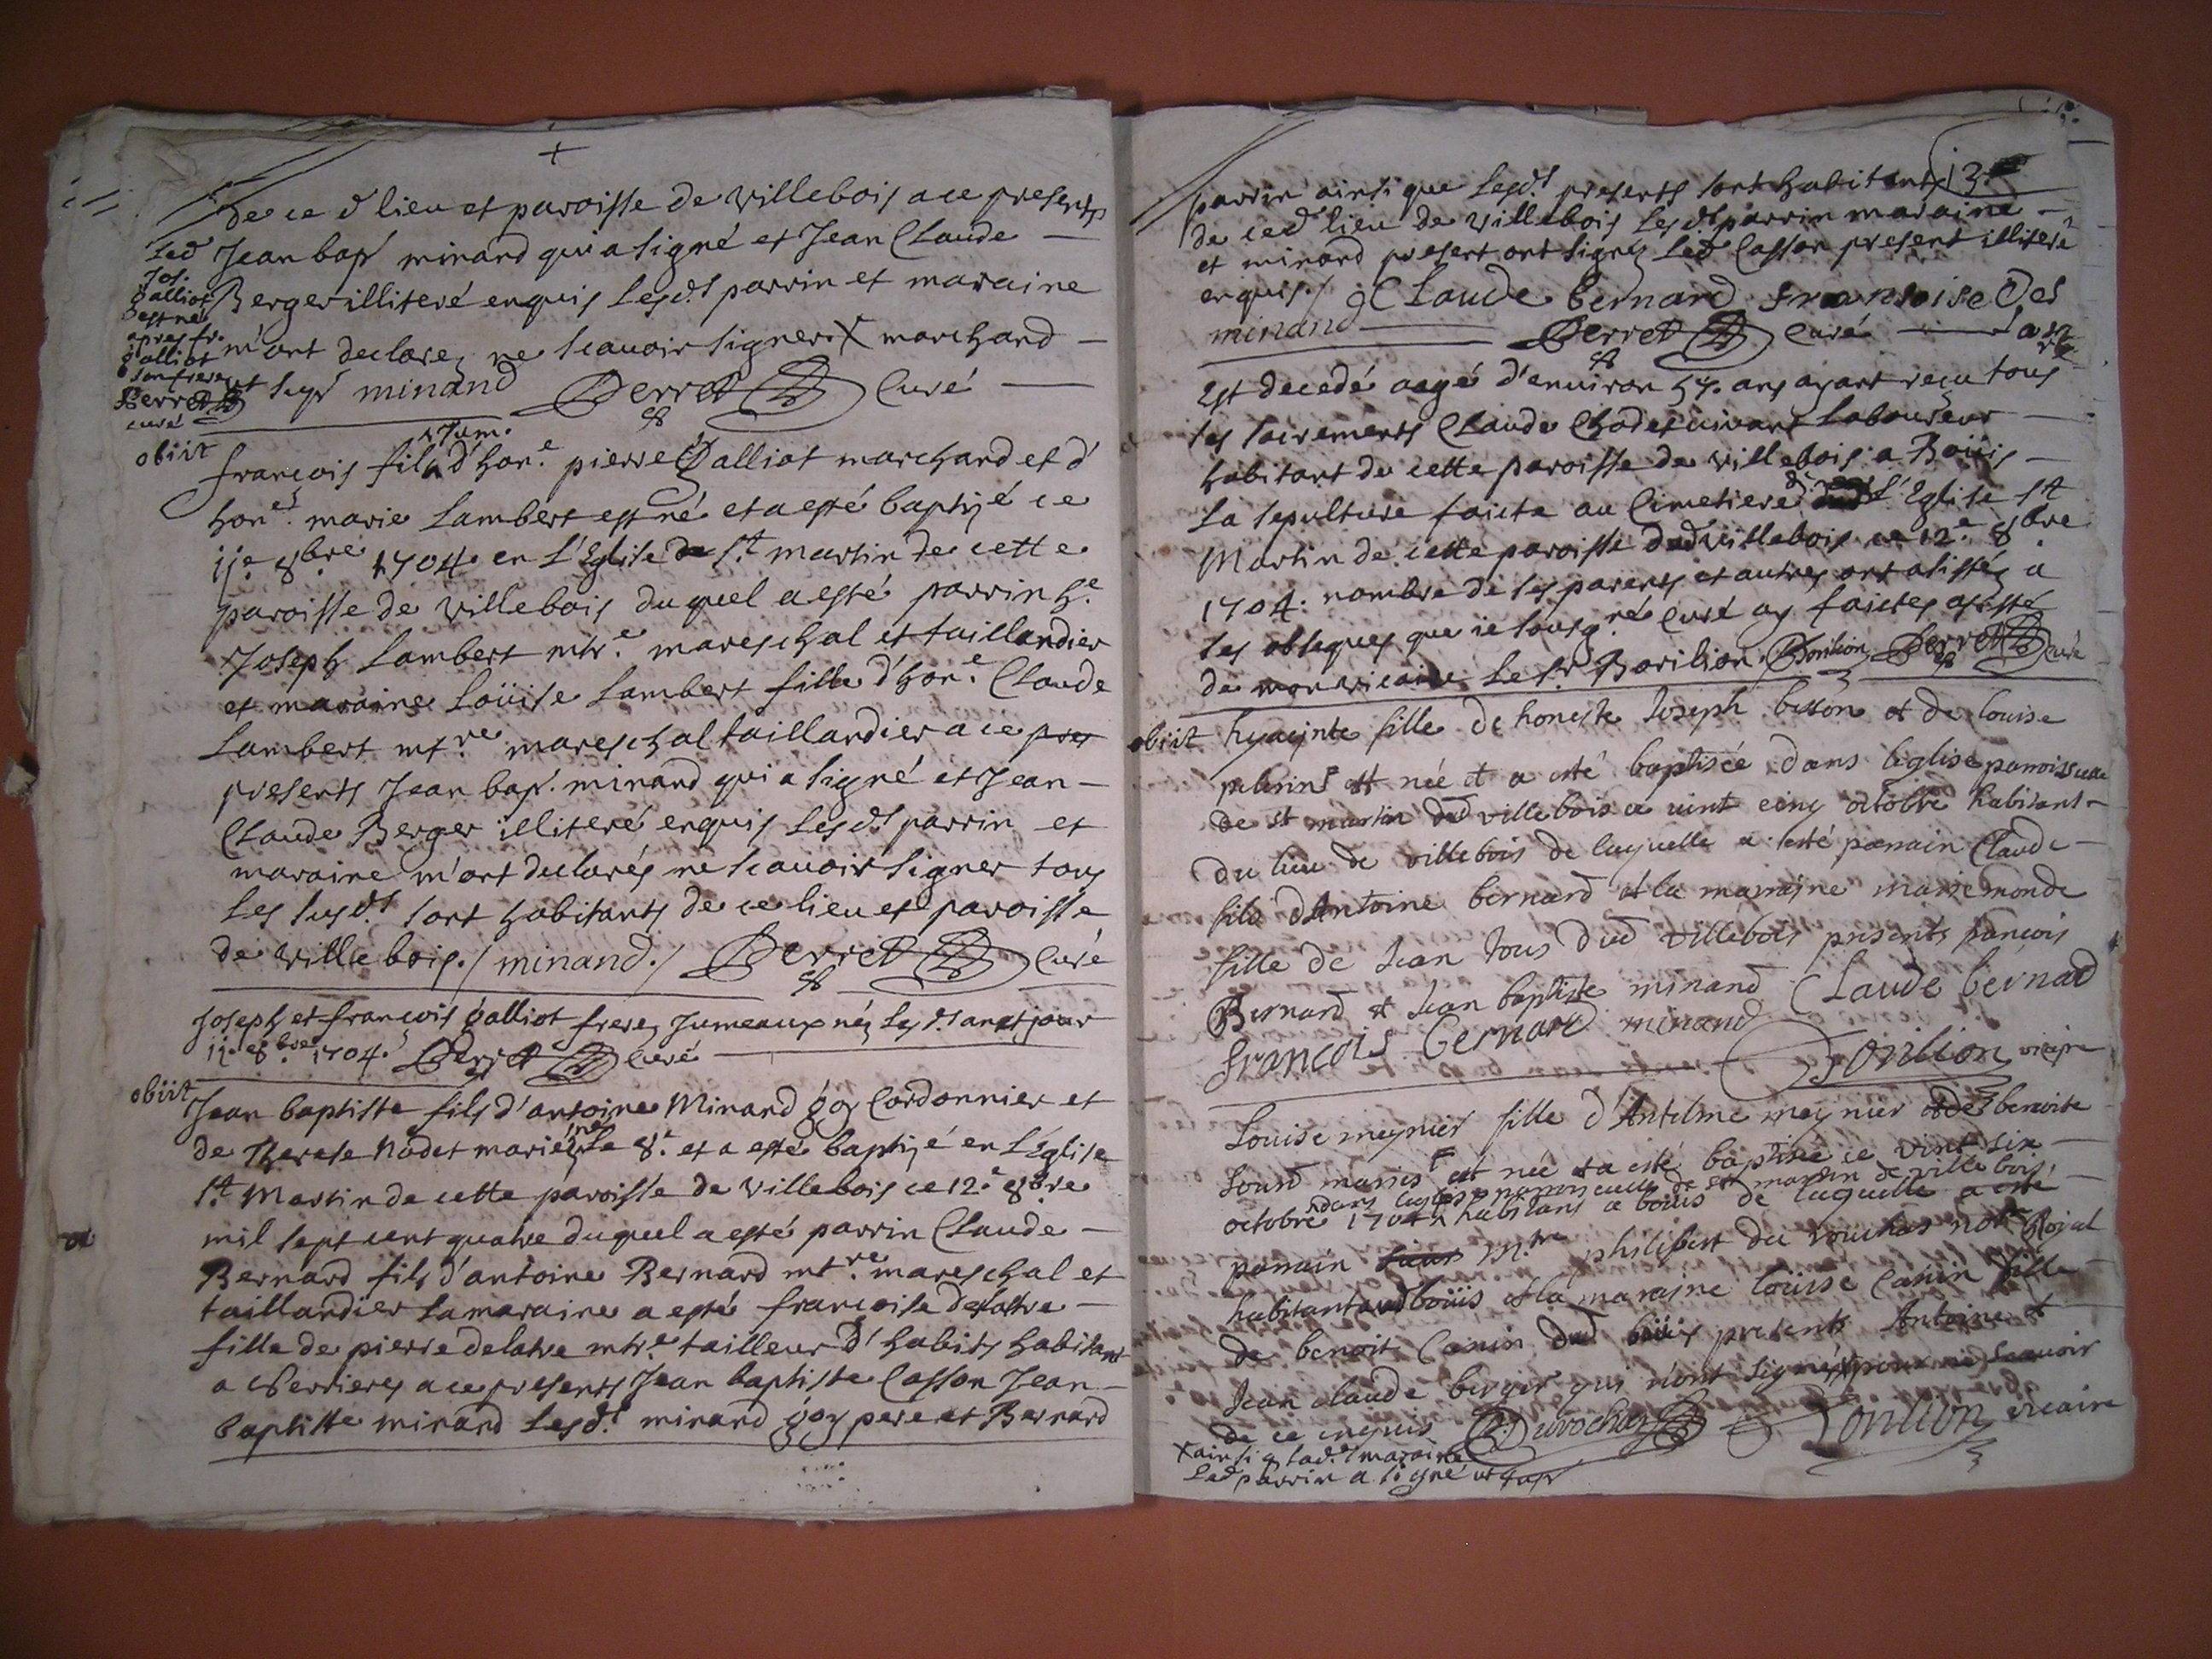 de ce d lieu et paroisse de villebois a ce presents
led Jean bap minand qui a signé et Jean Claude
Berger illiteré enquis lesd.s parrin et maraine
m'ont declarez ne scauoir signer X marchand
minand Perret Curé
Jos.
galliot
est né
apres fr.
galliot
son frere
Perret
curé
obiit
Jum.
françois fils d'hon.e pierre Galliot marchand et d'
hon.e marie Lambert est né et a esté baptizé ce
11.e 8bre 1704 en L'Eglise de St martin de cette
paroisse de villebois duquel a esté parrin h.e
Joseph Lambert mtr.e mareschal et taillandier
et maraine Loüise Lambert fille d'hon.e Claude
Lambert mtre mareschal taillandier a ce pres
presents Jean bap. minand qui a signé et Jean
Claude Berger illiteré enquis lesd.s parrin et
maraine m'ont declarés ne scauoir signer tous
les susd.s sont habitants de ce lieu et paroisse
de villebois./ minand./ Perret Curé
Joseph et françois galliot freres Jumeaux néz lesd.s an et jour
11.e 8bre 1704. Perret Curé
obiit
Jean baptiste fils d'antoine Minand goy Cordonnier et
de Therese Nodet mariéz né le 8.e et a esté baptizé en L'Eglise
St Martin de cette paroisse de Villebois ce 12.e 8bre
mil sept cent quatre duquel a esté parrin Claude
Bernard fils d'antoine Bernard mtre mareschal et
taillandier la maraine a esté françoise delastre
fille de pierre delatre mtr.e tailleur d'habits habitant
a ce presents Jean baptiste Casson Jean
baptiste minand lesd.s minand goy pere et Bernard
parrin ainsi que lesd.s presents sont habitants 13
de ced lieu de villebois lesd.s parrin maraine
et minand present ont signez led Casson present illiteré
enquis./ Claude bernard fransoise Des
minand Perret Curé
Est decedé aagé d'enuiron 57. ans ayant reçu tous
ses sacrements Claude Chodet viuant Laboureur
habitant de cette paroisse de villebois a Boüis
la sepulture faicte au Cimetiere de L'Eglise St
Martin de cette paroisse dud villebois ce 12.e 8bre
1704. nombre de ses parents et autres ont assistéz a
ses obseques que ie sousg.né Curé ay faictes assisté
de mon vicaire le Sr Borilion Borilion Perret Curé
obiit
hyacinte fille de honeste Joseph beson et de louise
pelerin est née et a esté baptisée dans leglise parroissielle
de st martin dud villebois ce uint cinq octobre habitant
du lieu de villebois de laquelle a esté parrain Claude
fils d'Antoine bernard et la marraine marie monde
fille de Jean tous dud villebois presents francois
Bernard et Jean baptiste minand Claude bernad
francois bernard minand Borilion vicaire
Louise meynier fille d'Antelme meynier et de benoite
Sourd mariés est née et a esté baptisée ce vint six
dans leglise parroissielle de st martin de villebois
octobre 1704 habitans a boüis de laquelle a esté
parrain Mtre philibert du rochas notre Royal
habitant aud boüis et la maraine loüise Canin fille
de benoit Canin dud boüis presents Antoine et
Jean claude berger qui n'ont signé X pour ne scauoir
de ce enquis Durochas Borilion vicaire
X ainsi q lad.e maraine
led parrin a signé